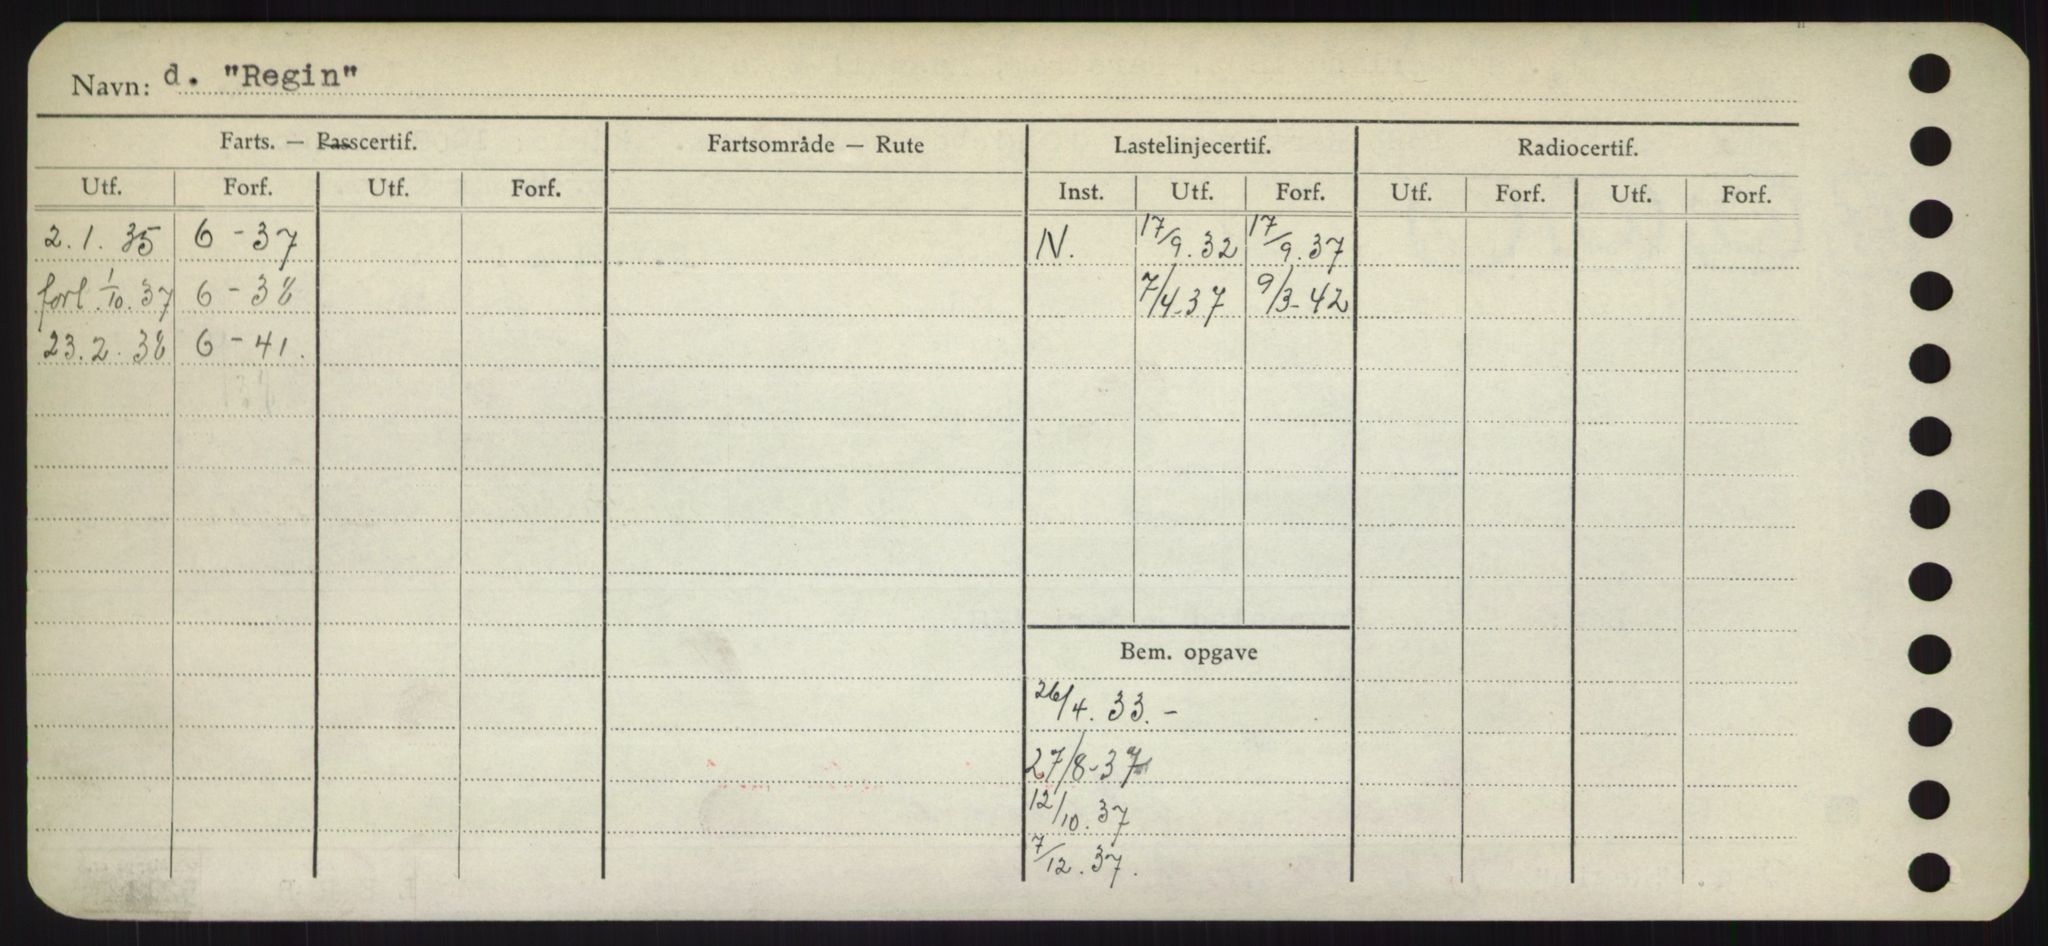 Navn: d. "Regin"
Farts. — Passcertif. Fartsområde — Rute Lastelinjecertif. Radiocertif.
Utf. Forf. Utf. Forf. Inst. Utf. Forf. Utf. Forf. Utf. Forf.
2.1.35 6-37 N. 17/9.32 17/9.37
forl. 1/10.37 6-38 7/4-37 9/3-42
23.2.38 6-41.
Bem. opgave
26/4.33.-
27/8-37
12/10.37
7/12.37.